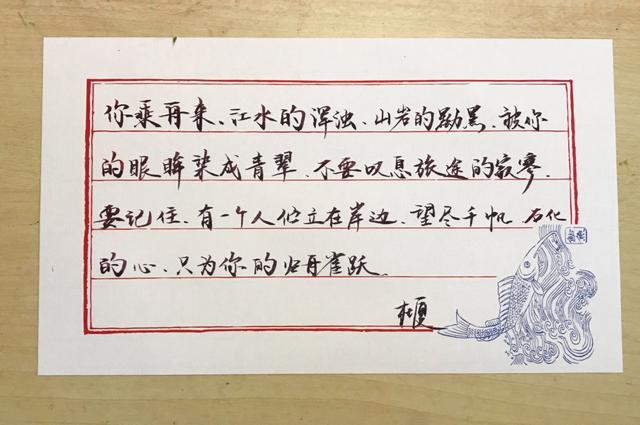 你乘舟来、江水的浑浊、山岩的黝黑、被你
的眼眸染成青翠、不要叹息旅途的寂寥、
要记住、有一个人伫立在岸边、望尽千帆 石化
的心、只为你的归舟雀跃.